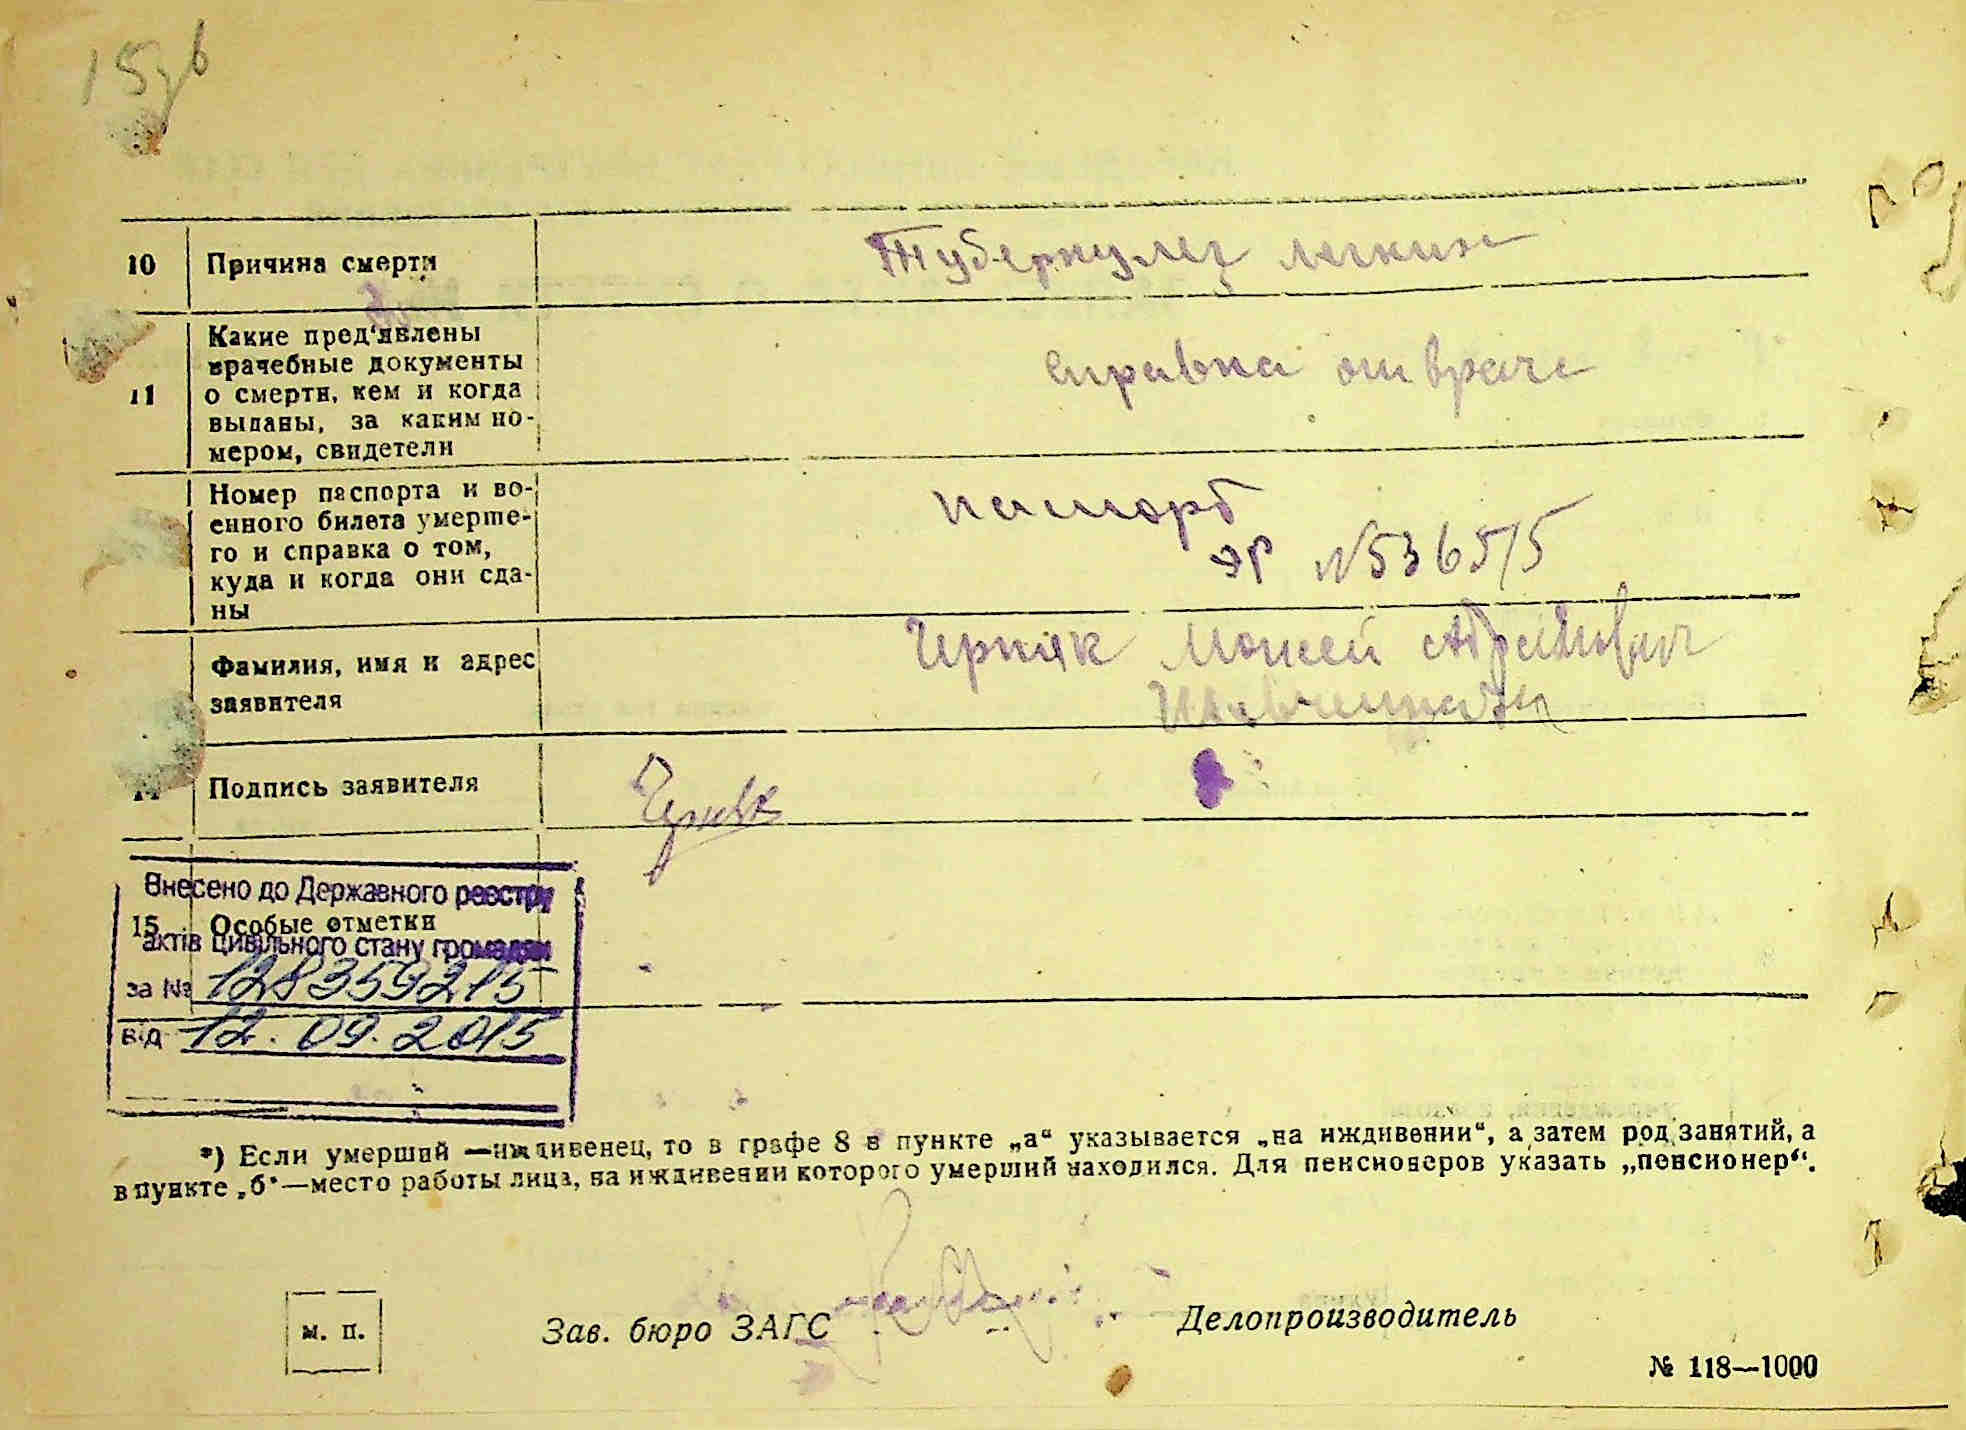 10 Причина смерти Туберкулез легких
11 Какие пред'явлены
врачебные документы
о смерти, кем и когда
выданы, за каким но-
мером, свидетели
справка от врача
Номер паспорта и во-
енного билета умерше-
го и справка о том,
куда и когда они сда-
ны
паспорт
ЭР N536515
Фамилия, имя и адрес
заявителя
Черняк Моисей Абрамович
Подпись заявителя Черняк
Внесено до Державного реєстру
15 Особые отметки
актів цивільного стану громадян
за № 128359215
від 12.09.2015
*) Если умерший —иждивенец, то в графе 8 в пункте „а“ указывается „на иждивении“, а затем род занятий, а
в пункте „б“—место работы лица, на иждивении которого умерший находился. Для пенсионеров указать „пенсионер“.
м. п. Зав. бюро ЗАГС Делопроизводитель
№ 118—1000